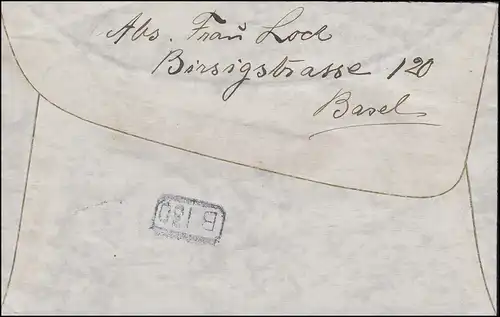 Abs. Frau Loch
Birsigstrasse 120
Basel
B 130